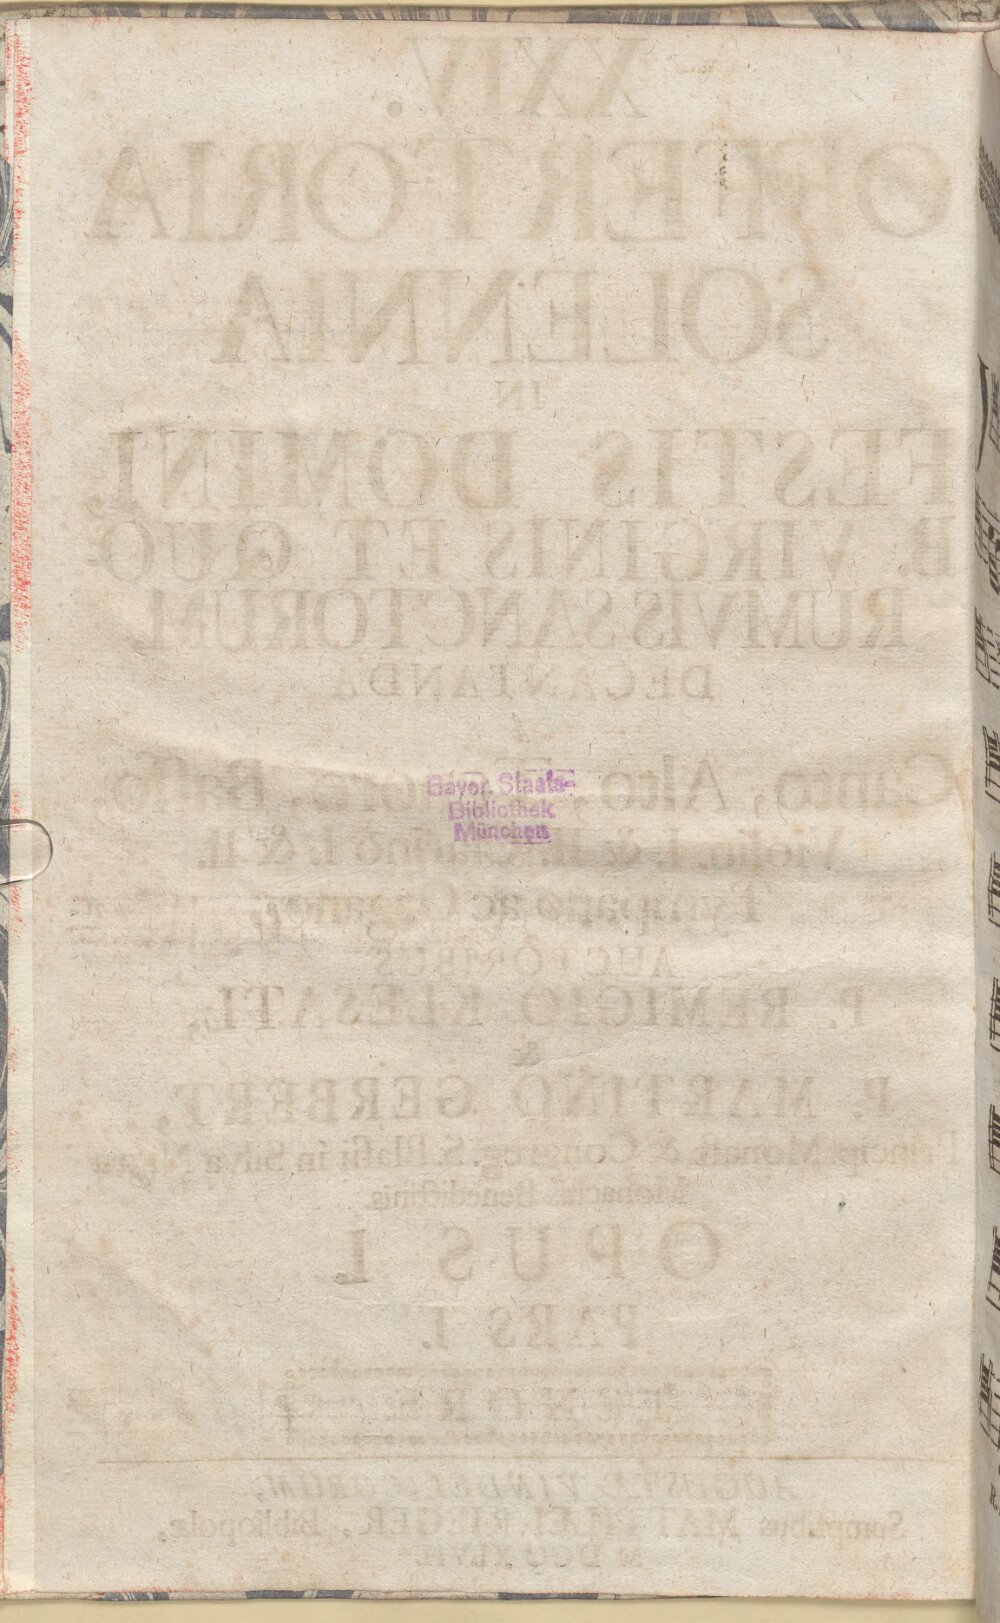 XXIV.
OFFERTORIA
SOLENNIA
IN
FESTIS DOMINI,
B. VIRGINIS ET QUO-
RUMVIS SANCTORUM
DECANTANDA
à
Canto, Alto, Tenore, Basso,
Violin. I. & II. Clarino I. & II.
Tympano ac Organo,
AUCTORIBUS
P. REMIGIO KLESATL,
&
P. MARTINO GERBERT,
Princip. Monast. & Congreg. S. Blasii in Silva Nigra
Monachis Benedictinis.
OPUS I.
PARS I.
TENORE.
AUGUSTÆ VINDELICORUM,
Sumptibus MATTHÆI RIEGER, Bibliopolæ,
M DCC XLVII.
Bayer. Staats-
Bibliothek
München